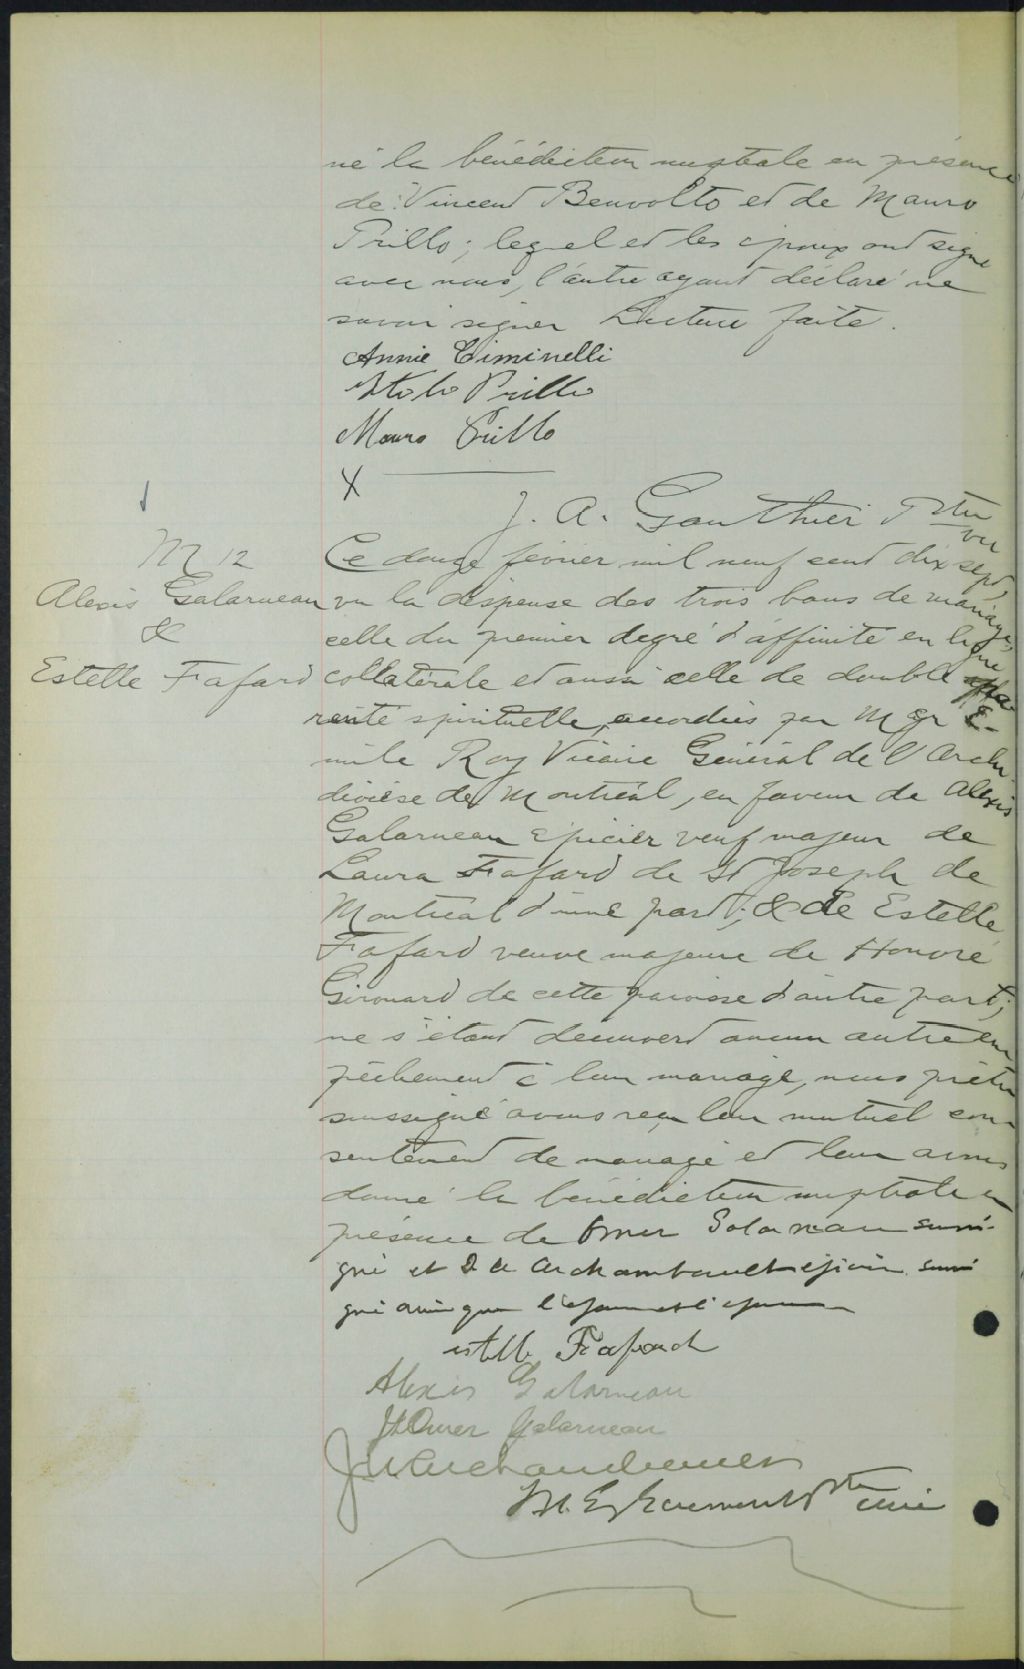 né la bénédiction nuptiale en présence
de Vincent Benvolto et de Mauro
Prillo; lequel et les époux ont signé
avec nous, l'autre ayant déclaré ne
savoir signer Lecture faite.
Annie Ciminelli
Italo Prillo
Mauro Prillo
X
J. A. Gauthier Ptre
vic
M 12
Alexis Galarneau
&
Estelle Fafard
Ce douze février mil neuf cent dix sept,
vu la dispense des trois bans de mariage,
celle du premier degré d'affinité en ligne
collatérale et aussi celle de double pa
renté spirituelle, accordées par Mgr E-
mile Roy Vicaire Général de l'Archi
diocèse de Montréal, en faveur de Alexis
Galarneau épicier veuf majeur de
Laura Fafard de St Joseph de
Montréal d'une part; & de Estelle
Fafard veuve majeure de Honoré
Girouard de cette paroisse d'autre part;
ne s'étant découvert aucun autre em
pêchement à leur mariage, nous prêtre
soussigné avons reçu leur mutuel con
sentement de mariage et leur avons
donné la bénédiction nuptiale en
présence de Omer Galarneau soussi-
gné et de Archambault épicier soussi
gné ainsi que l'époux et l'épouse
Estelle Fafard
Alexis Galarneau
J Omer Galarneau
Archambault
Ptre curé